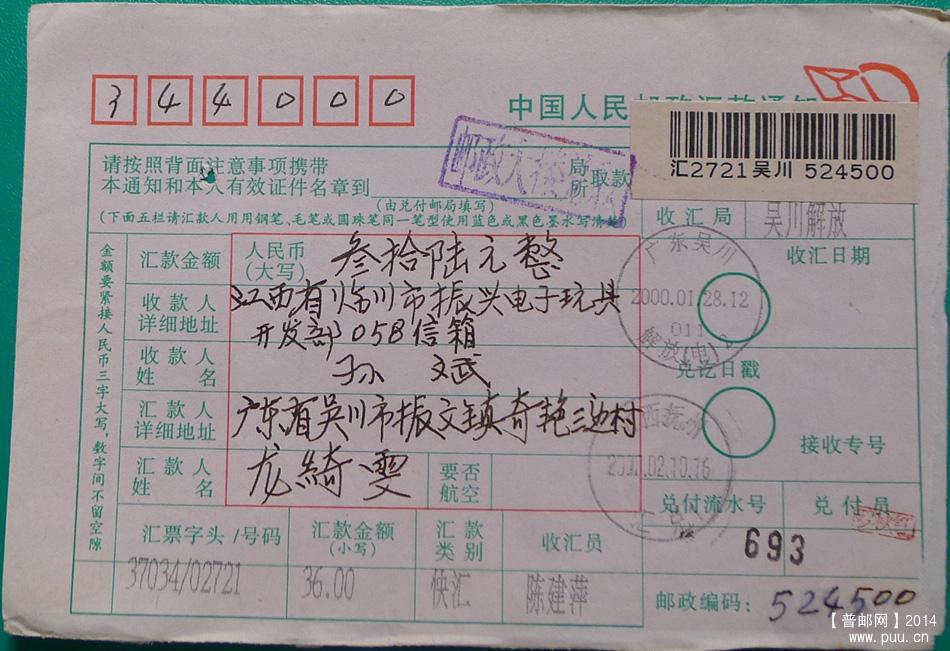 344000
中国人民邮政汇款通知
汇2721吴川 524500
请按照背面注意事项携带
本通知和本人有效证件名章到
局
所
取款
(由兑付邮局填写)
(下面五栏请汇款人用用钢笔、毛笔或圆珠笔同一笔型使用蓝色或黑色墨水写清楚)
收汇局 吴川解放
金额要紧接人民币三字大写,数字间不留空隙
汇款金额 人民币(大写) 叁拾陆元整
收汇日期
广东吴川
2000.01.28.12
011
解放(电)
收款人详细地址 江西省临川市振兴电子玩具
开发部058信箱
收款人姓名 孙文斌
兑讫日戳
汇款人详细地址 广东省吴川市振文镇奇艳三边村
西抚州
02.10.16
接收专号
汇款人姓名 龙绮雯
要否航空
兑付流水号 兑付员
693
汇票字头/号码 汇款金额(小写) 汇款类别 收汇员
37034/02721 36.00 快汇 陈建萍
邮政编码: 524500
【普邮网】2014
www.puu.cn